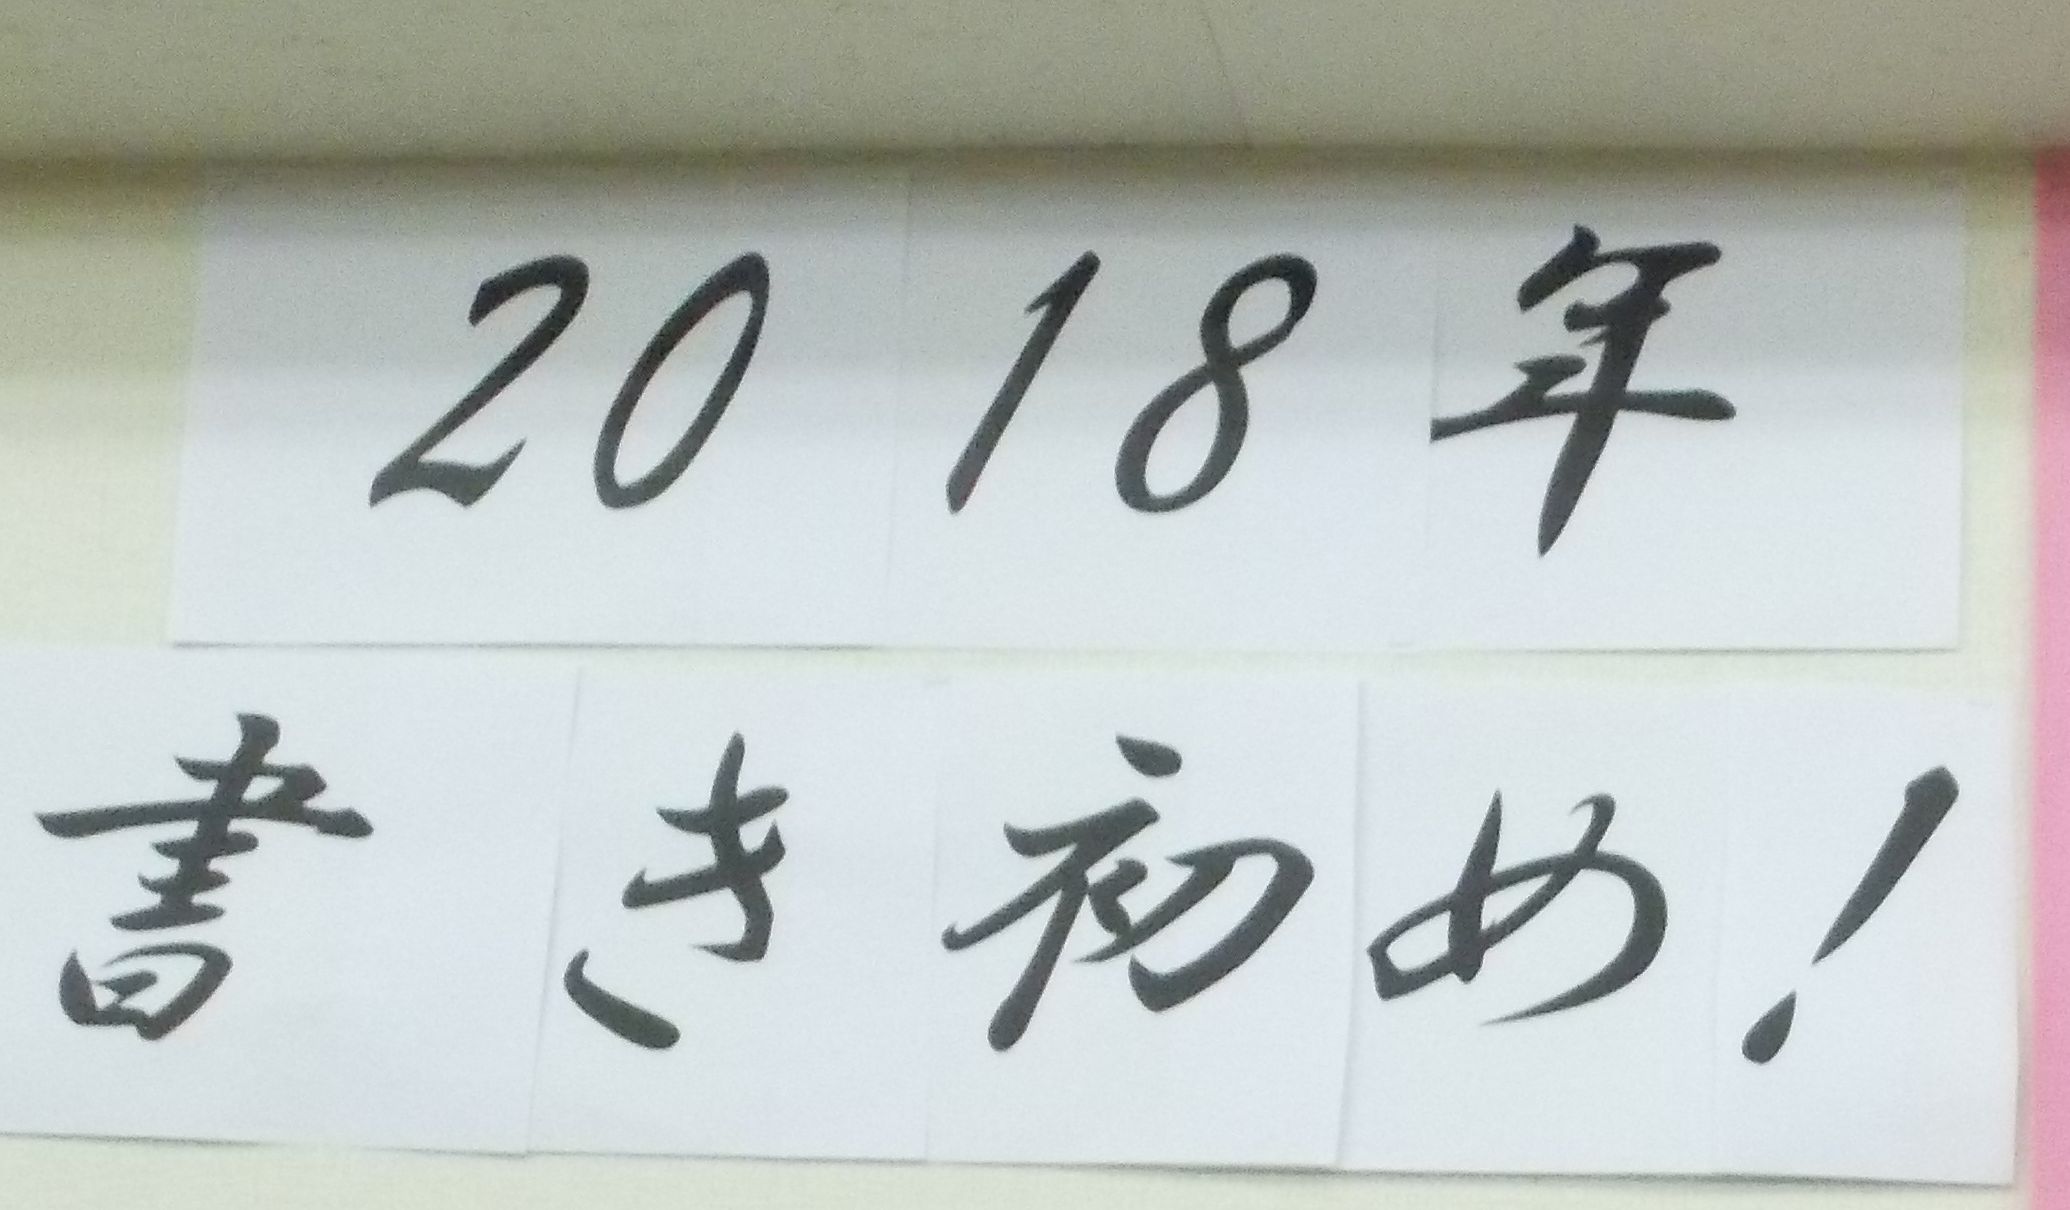 2018年
書き初め!